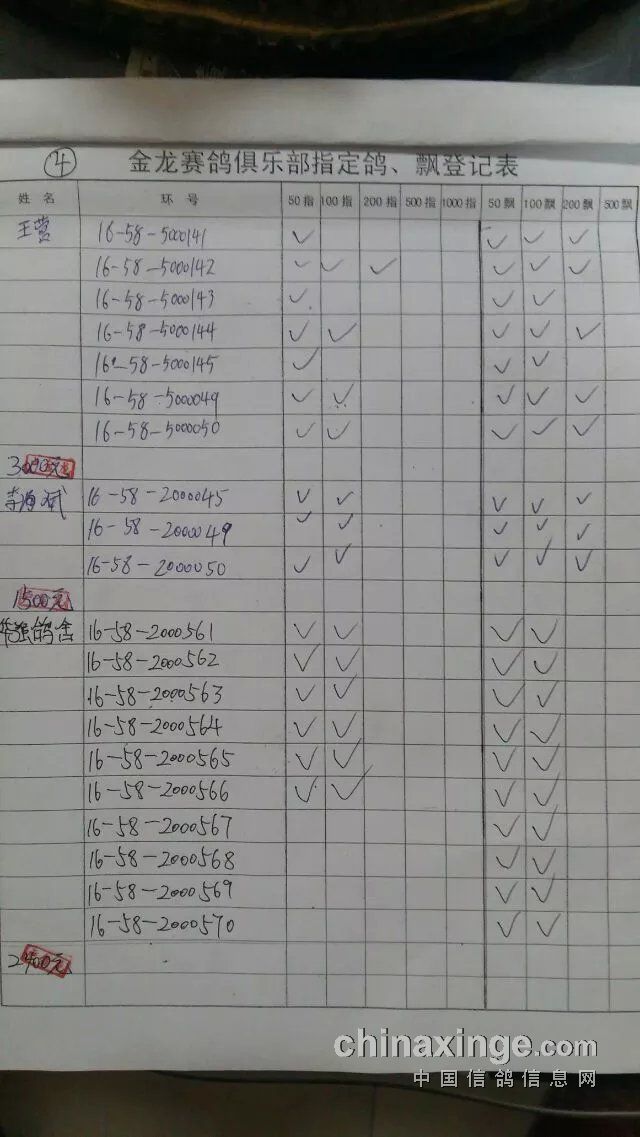 ④ 金龙赛鸽俱乐部指定鸽、飘登记表
姓名 环号 50指 100指 200指 500指 1000指 50飘 100飘 200飘 500飘
王营 16-58-5000141 ✓ ✓ ✓ ✓
16-58-5000142 ✓ ✓ ✓ ✓ ✓ ✓
16-58-5000143 ✓ ✓ ✓
16-58-5000144 ✓ ✓ ✓ ✓ ✓
16-58-5000145 ✓ ✓ ✓
16-58-5000049 ✓ ✓ ✓ ✓ ✓
16-58-5000050 ✓ ✓ ✓ ✓ ✓
3000元
李海斌 16-58-2000045 ✓ ✓ ✓ ✓ ✓
16-58-2000049 ✓ ✓ ✓ ✓ ✓
16-58-2000050 ✓ ✓ ✓ ✓ ✓
1500元
华强鸽舍 16-58-2000561 ✓ ✓ ✓ ✓
16-58-2000562 ✓ ✓ ✓ ✓
16-58-2000563 ✓ ✓ ✓ ✓
16-58-2000564 ✓ ✓ ✓ ✓
16-58-2000565 ✓ ✓ ✓ ✓
16-58-2000566 ✓ ✓ ✓ ✓
16-58-2000567 ✓ ✓
16-58-2000568 ✓ ✓
16-58-2000569 ✓ ✓
16-58-2000570 ✓ ✓
2400元
chinaxinge.com
中国信鸽信息网